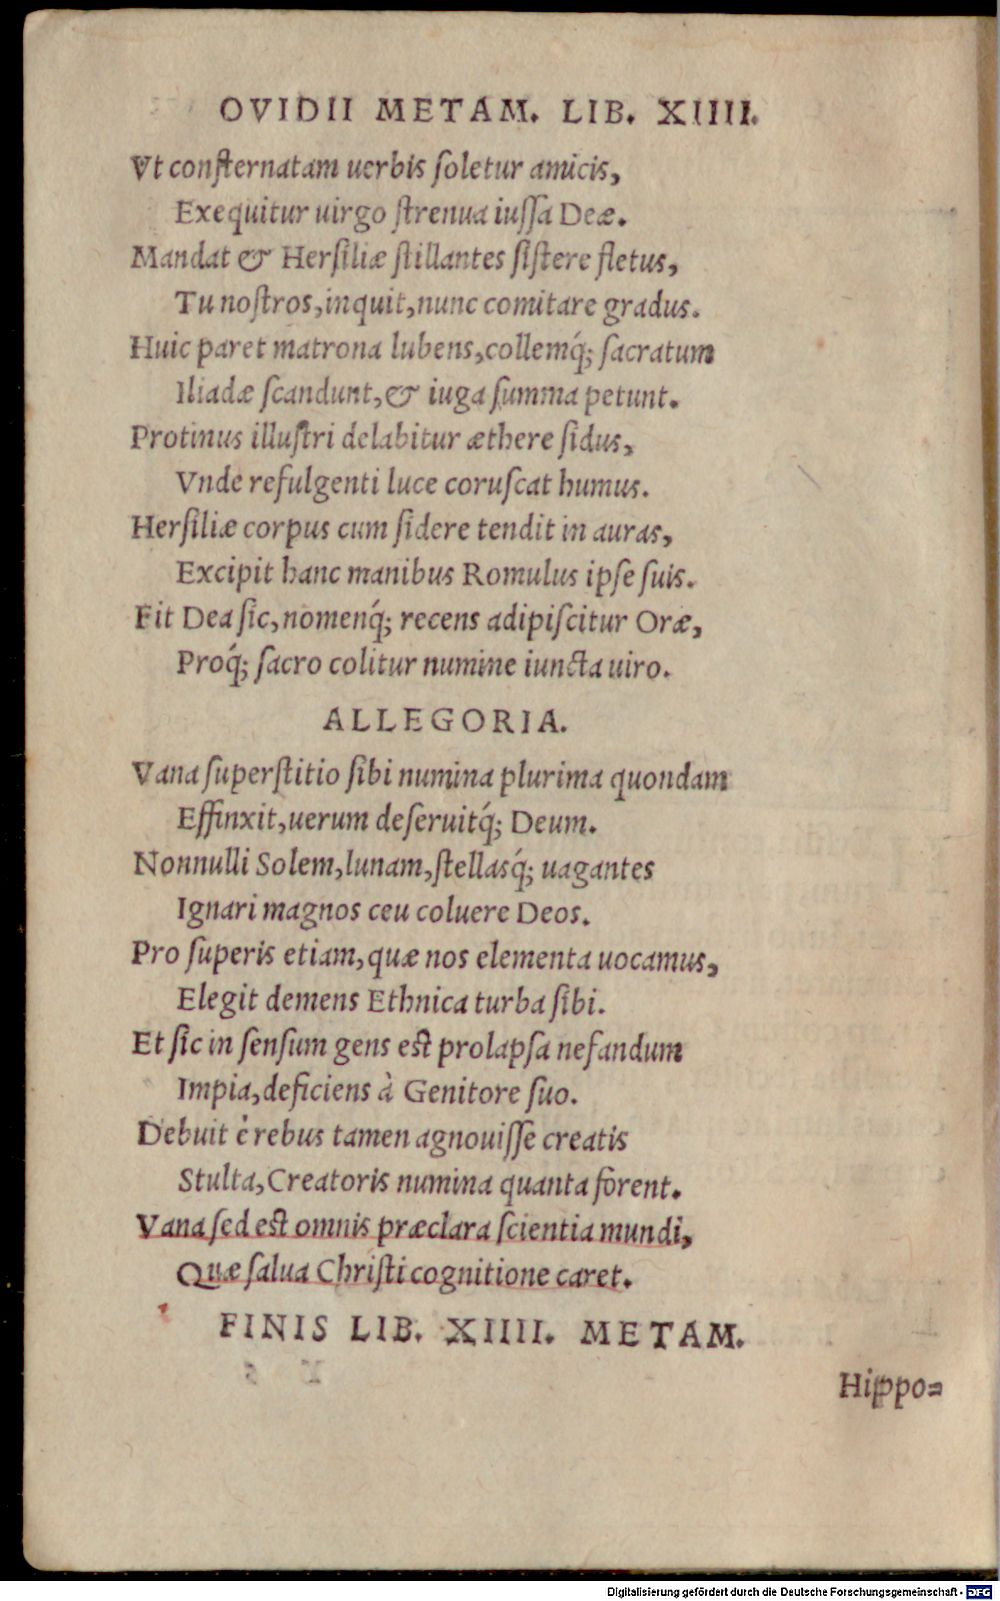 OVIDII METAM. LIB. XIIII.
Vt conſternatam uerbis ſoletur amicis,
Exequitur uirgo ſtrenua iuſſa Deæ.
Mandat & Herſiliæ ſtillantes ſiſtere fletus,
Tu noſtros, inquit, nunc comitare gradus.
Huic paret matrona lubens, collemq́; ſacratum
Iliadæ ſcandunt, & iuga ſumma petunt.
Protinus illuſtri delabitur æthere ſidus,
Vnde refulgenti luce coruſcat humus.
Herſiliæ corpus cum ſidere tendit in auras,
Excipit hanc manibus Romulus ipſe ſuis.
Fit Dea ſic, nomenq́; recens adipiſcitur Oræ,
Proq́; ſacro colitur numine iuncta uiro.
ALLEGORIA.
Vana ſuperſtitio ſibi numina plurima quondam
Effinxit, uerum deſeruitq́; Deum.
Nonnulli Solem, lunam, ſtellasq́; uagantes
Ignari magnos ceu coluere Deos.
Pro ſuperis etiam, quæ nos elementa uocamus,
Elegit demens Ethnica turba ſibi.
Et ſic in ſenſum gens est prolapſa nefandum
Impia, deficiens à Genitore ſuo.
Debuit è rebus tamen agnouiſſe creatis
Stulta, Creatoris numina quanta forent.
Vana ſed est omnis præclara ſcientia mundi,
Quæ ſalua Chriſti cognitione caret.
FINIS LIB. XIIII. METAM.
Hippo=
Digitalisierung gefördert durch die Deutsche Forschungsgemeinschaft - DFG